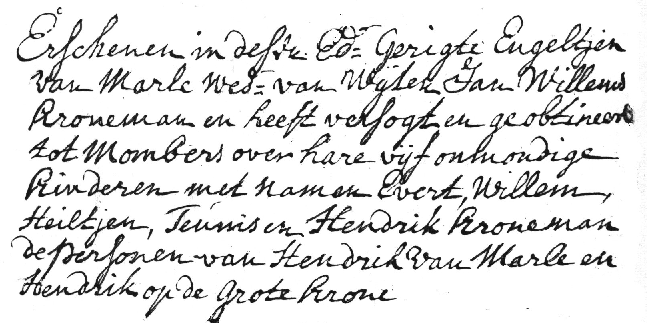 Erschenen in desen Ed= Gerigte Engeltjen
van Marle wed= van Wijlen Jan Willems
Kroneman en heeft versogt en geobtineert
tot Mombers over hare vijf onmondige
Kinderen met namen Evert, Willem,
Heiltjen, Teunis en Hendrik Kroneman
de personen van Hendrik van Marle en
Hendrik op de Grote Krone